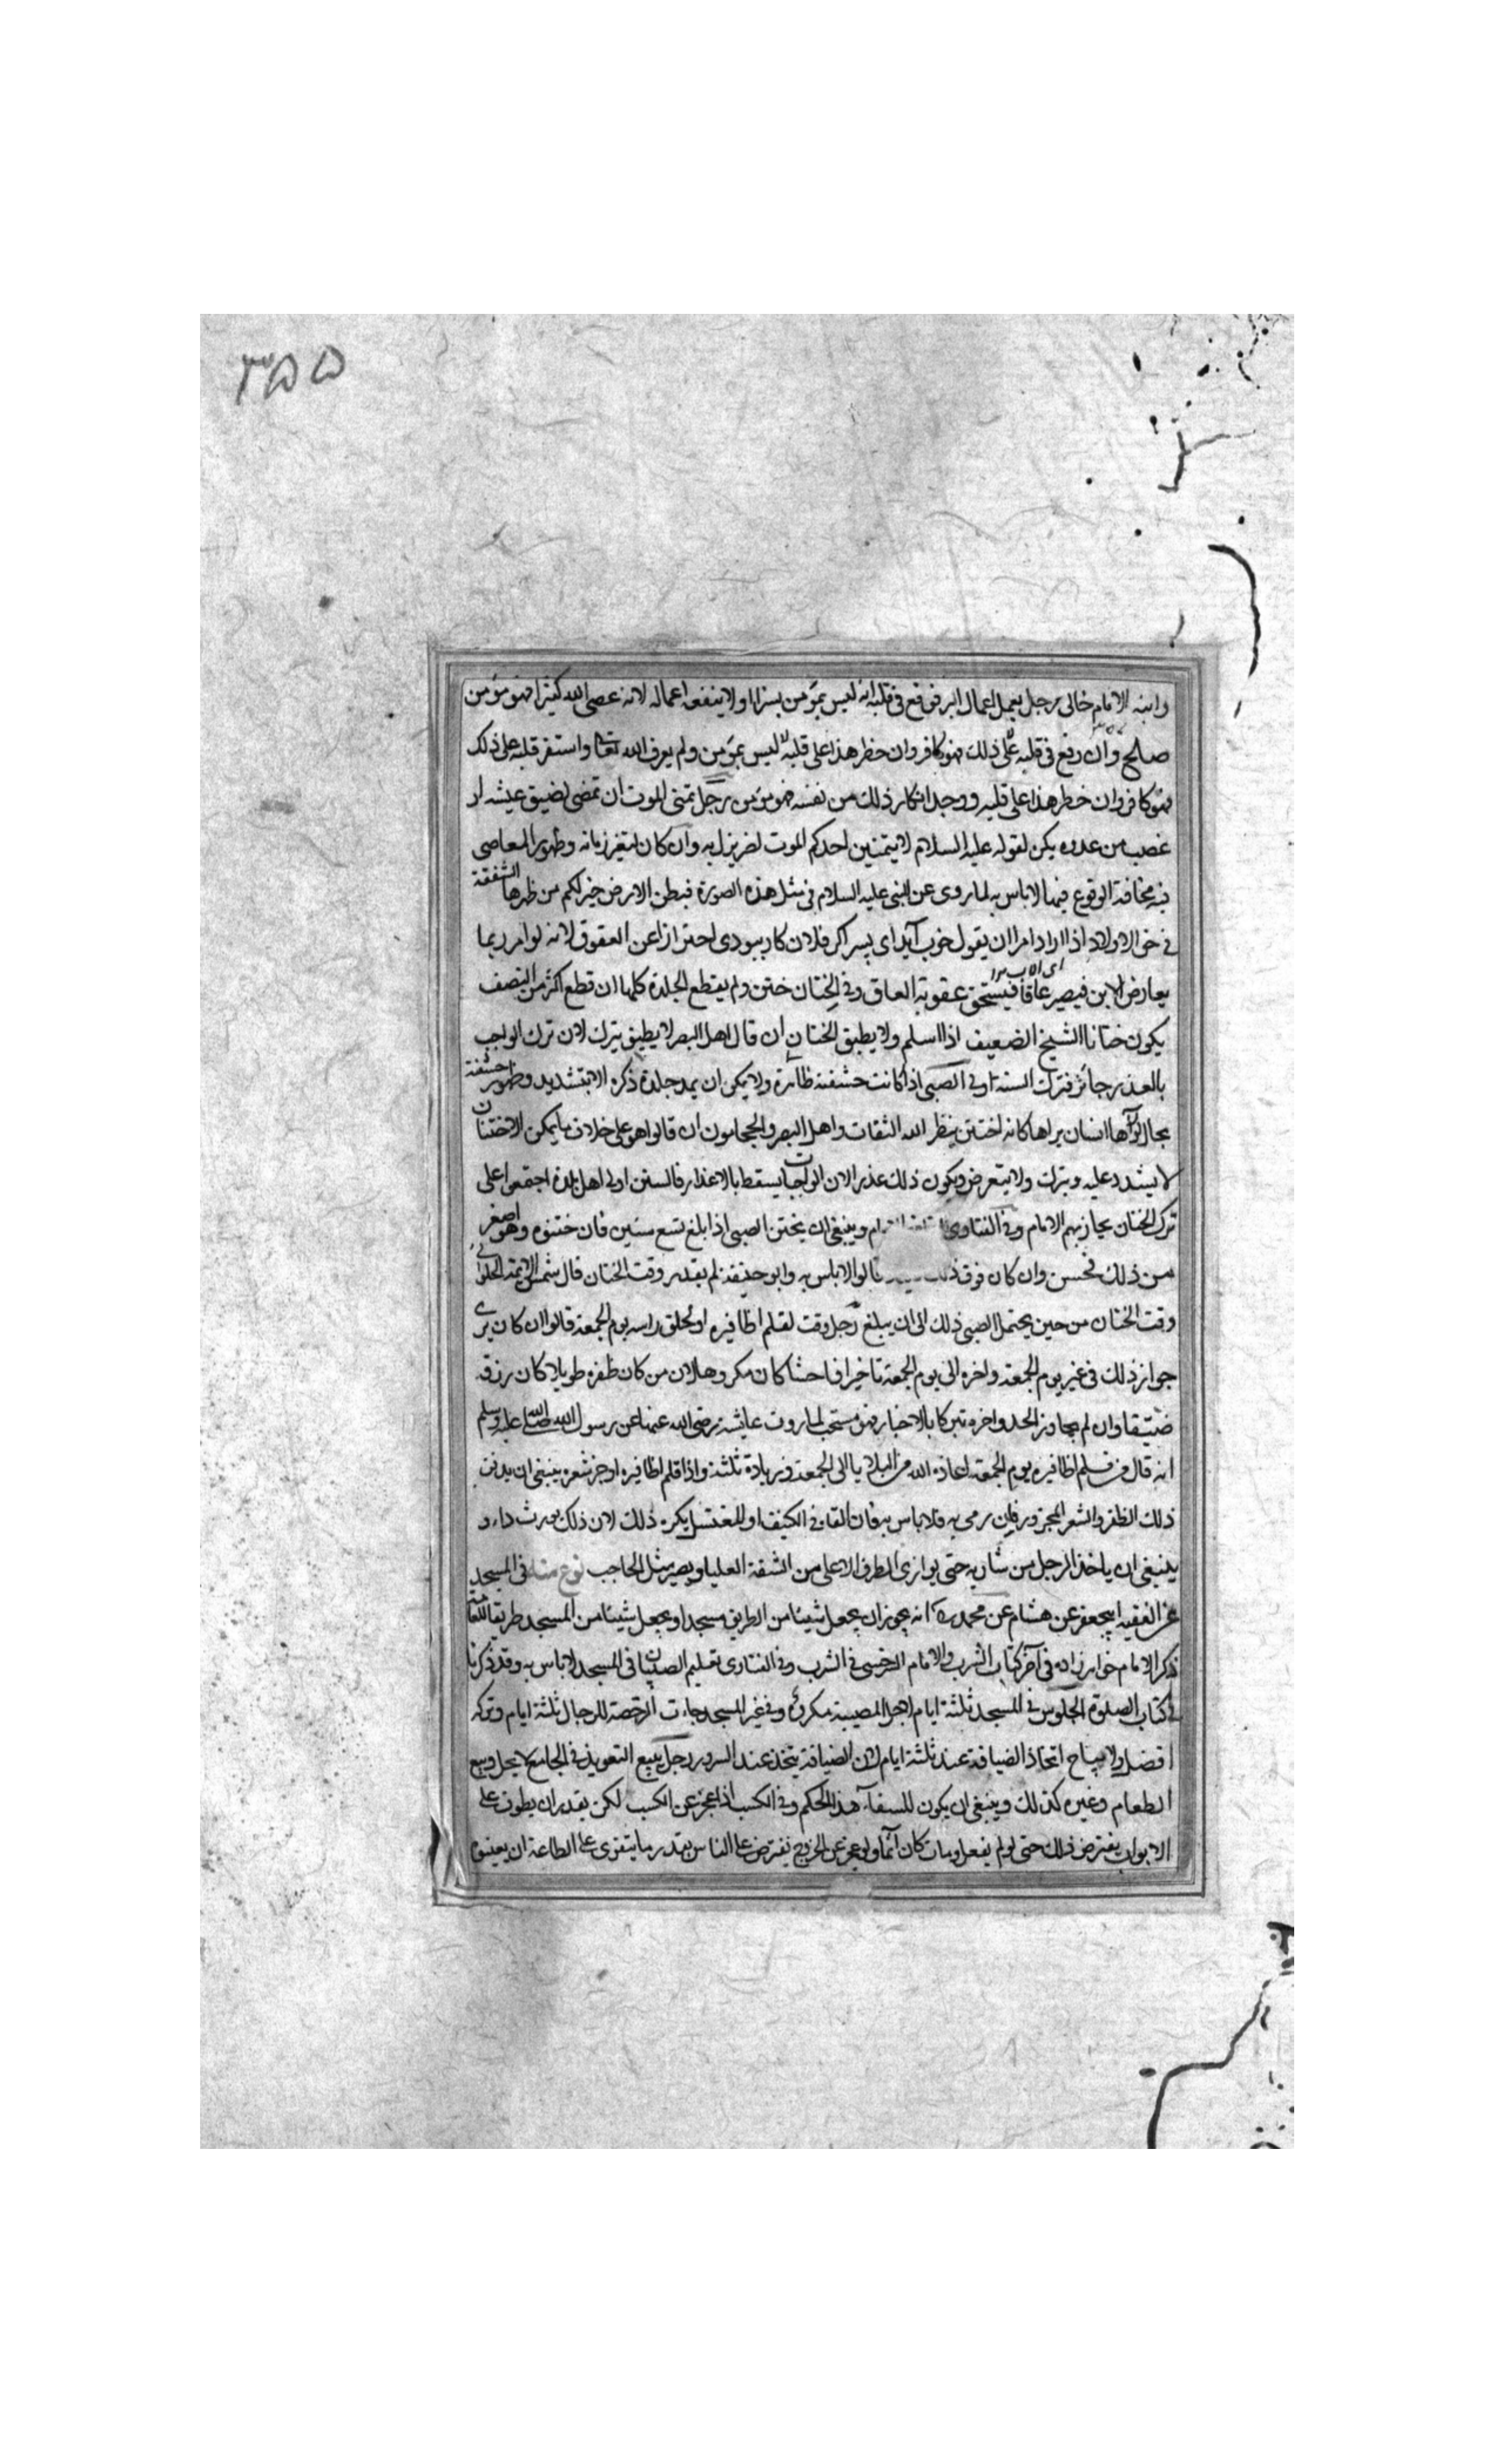 ٣٥٥
وابنه الامام خالى رجل يعمل اعمال البر فوقع فى قلبه انه ليس بمؤمن بسزا ولا ينفعه اعماله لانه عصى الله كثيرا فهو مؤمن
صالح وان وقع فى قلبه على ذلك فهو كافر وان خطر هذا على قلبه لا ليس بمؤمن ولم يعرف الله تعالى واستقر قلبه على ذلك
فهو كافر وان خطر هذا على قلبه ووجد انكار ذلك من نفسه فهو مؤمن رجل تمنى الموت ان تمنى لضيق عيشه او
غضب من عدوه يكره لقوله عليه السلام لا يتمنين احدكم الموت لضر نزل به وان كان لتغير زمانه وظهور المعاصى
فيه مخافة الوقوع فيها لا باس به لما روى عن النبى عليه السلام فى مثل هذه الصورة فبطن الارض خير لكم من ظهرها الشفقة
فى حق الاولاد اذا اراد امرا ان يقول خوب آيد اى پسر اكر فلان كار بودى احترازا عن العقوق لانه لو امر ربما
يعارض الابن فيصير عاقا فيستحق عقوبة العاق وفى الختان ختن ولم يقطع الجلدة كلها ان قطع اكثر من النصف
يكون ختانا الشيخ الضعيف اذا اسلم ولا يطيق الختان ان قال اهل البصر لا يطيق يترك لان ترك الواجب
بالعذر جائز فترك السنة اولى الصبى اذا كانت حشفته ظاهرة ولا يمكن ان يمد جلدة ذكره الا بتشديد وظهور حشفته
بحال لو رآها انسان يراها كانه اختتن ينظر اليه الثقات واهل البصر والحجامون ان قالوا هو على خلاف ما يمكن الاختتان
لا يشدد عليه ويترك ولا يتعرض ويكون ذلك عذرا لان الواجبات يسقط بالاعذار فالسنن اولى اهل بلدة اجتمعوا على
ترك الختان يحاربهم الامام وفى الفتاوى وينبغى ان يختن الصبى اذا بلغ تسع سنين فان ختنوه وهو اصغر
من ذلك فحسن وان كان فوق ذلك قالوا لا باس به وابو حنيفة لم يقدر وقت الختان قال شمس الائمة الحلوائى
وقت الختان من حين يحتمل الصبى ذلك الى ان يبلغ رجل وقت لقلم اظافيره او لحلق راسه يوم الجمعة قالوا ان كان يرى
جواز ذلك فى غير يوم الجمعة واخره الى يوم الجمعة تاخيرا فاحشا كان مكروها لان من كان ظفره طويلا كان رزقه
ضيقا وان لم يجاوز الحد واخره تبركا بالاخبار فهو مستحب لما روت عايشة رضى الله عنها عن رسول الله صلى الله عليه وسلم
انه قال من قلم اظافيره يوم الجمعة اعاذه الله من البلايا الى الجمعة وزيادة ثلثة واذا قلم اظافيره او جز شعره ينبغى ان يدفن
ذلك الظفر والشعر المجزور فان رمى به فلا باس به فان القاه فى الكنيف او المغتسل يكره ذلك لان ذلك يورث داء و
ينبغى ان ياخذ الرجل من شاربه حتى يوازى الطرف الاعلى من الشفة العليا ويصير مثل الحاجب نوع منه فى المسجد
عن الفقيه ابى جعفر عن هشام عن محمد ره انه يجوز ان يجعل شيئا من الطريق مسجدا ويجعل شيئا من المسجد طريقا للعامة
ذكر الامام خواهرزاده فى آخر كتاب الشرب والامام السرخسى فى الشرب وفى الفتاوى تعليم الصبيان فى المسجد لا باس به وقد ذكرنا
فى كتاب الصلوة الجلوس فى المسجد ثلثة ايام لاجل المصيبة مكروه وفى غير المسجد جاءت الرخصة للرجال ثلثة ايام وتركه
افضل ولا يباح اتخاذ الضيافة عند ثلثة ايام لان الضيافة يتخذ عند السرور رجل يبيع التعويذ فى الجامع لا يحل وبيع
الطعام وغيره كذلك وينبغى ان يكون للسقاء هذا الحكم وفى الكسب اذا عجز عن الكسب لكن يقدر ان يطوف على
الابواب يفترض ذلك حتى لو لم يفعل ومات كان آثما ولو عجز عن الخروج يفترض على الناس بقدر ما يتقوى على الطاعة ان يعينوه